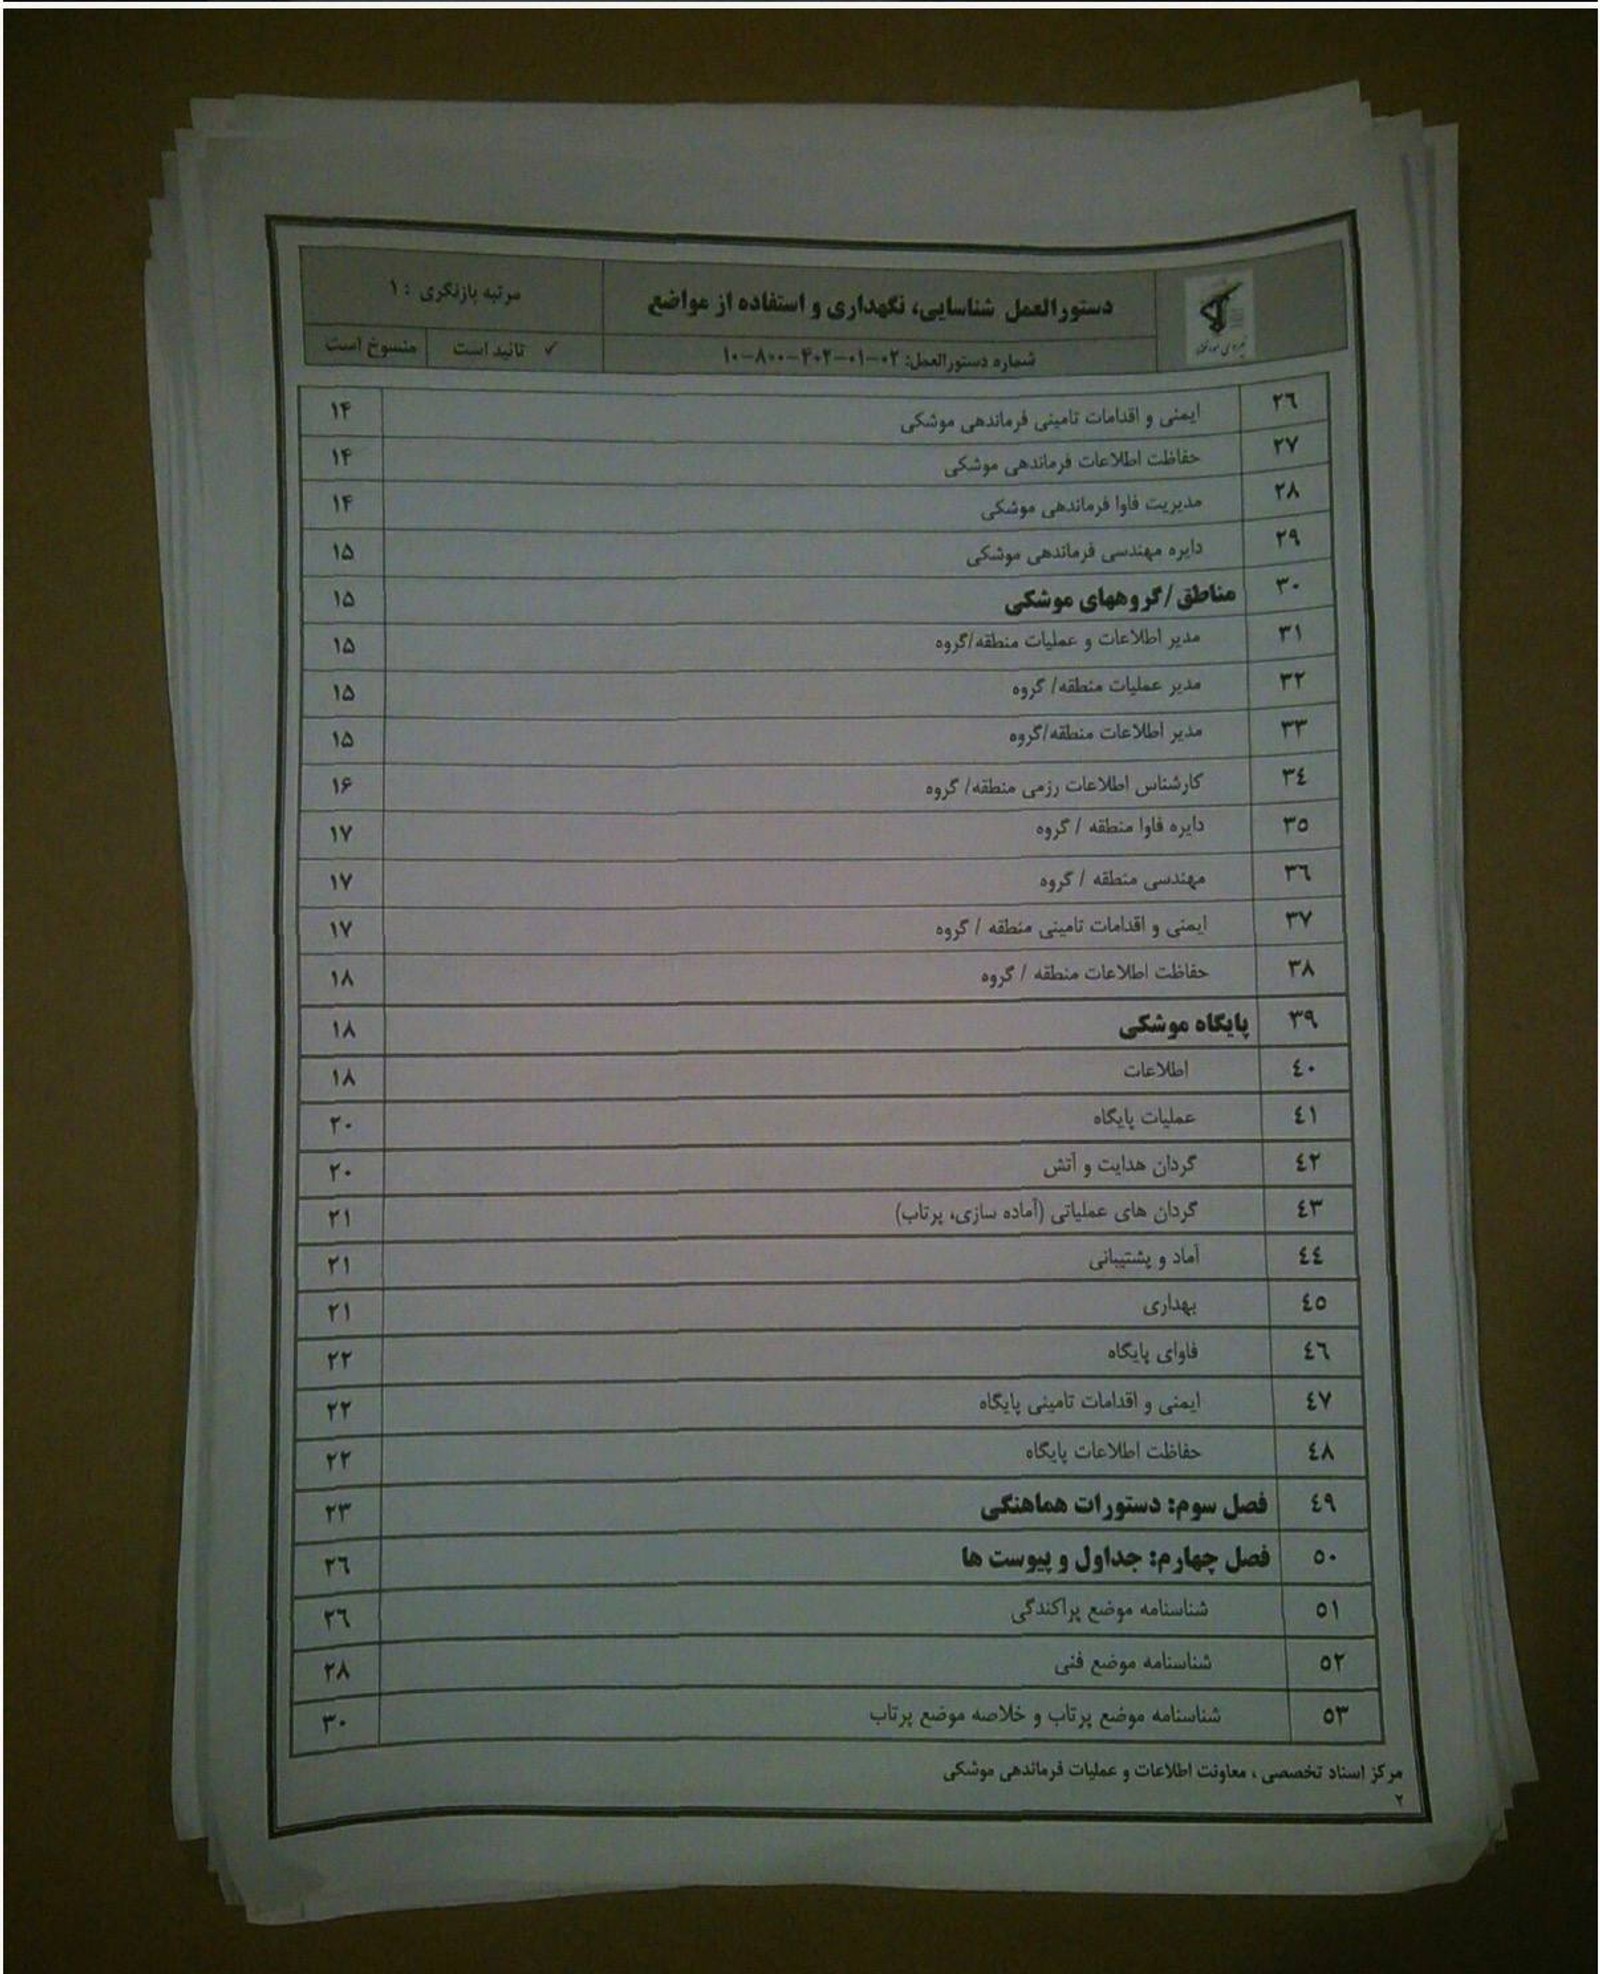 دستورالعمل شناسایی، نگهداری و استفاده از مواضع
مرتبه بازنگری : ۱
شماره دستورالعمل: ۰۲-۰۱-۴۰۲-۸۰۰-۱۰
✓ تائید است
منسوخ است
۲۶ ایمنی و اقدامات تامینی فرماندهی موشکی ۱۴
۲۷ حفاظت اطلاعات فرماندهی موشکی ۱۴
۲۸ مدیریت فاوا فرماندهی موشکی ۱۴
۲۹ دایره مهندسی فرماندهی موشکی ۱۵
۳۰ مناطق/گروههای موشکی ۱۵
۳۱ مدیر اطلاعات و عملیات منطقه/گروه ۱۵
۳۲ مدیر عملیات منطقه/ گروه ۱۵
۳۳ مدیر اطلاعات منطقه/گروه ۱۵
۳٤ کارشناس اطلاعات رزمی منطقه/ گروه ۱۶
۳٥ دایره فاوا منطقه / گروه ۱۷
۳٦ مهندسی منطقه / گروه ۱۷
۳۷ ایمنی و اقدامات تامینی منطقه / گروه ۱۷
۳۸ حفاظت اطلاعات منطقه / گروه ۱۸
۳۹ پایگاه موشکی ۱۸
٤۰ اطلاعات ۱۸
٤۱ عملیات پایگاه ۲۰
٤۲ گردان هدایت و آتش ۲۰
٤۳ گردان های عملیاتی (آماده سازی، پرتاب) ۲۱
٤٤ آماد و پشتیبانی ۲۱
٤٥ بهداری ۲۱
٤٦ فاوای پایگاه ۲۲
٤۷ ایمنی و اقدامات تامینی پایگاه ۲۲
٤۸ حفاظت اطلاعات پایگاه ۲۲
٤۹ فصل سوم: دستورات هماهنگی ۲۳
٥۰ فصل چهارم: جداول و پیوست ها ۲٦
٥۱ شناسنامه موضع پراکندگی ۲٦
٥۲ شناسنامه موضع فنی ۲۸
٥۳ شناسنامه موضع پرتاب و خلاصه موضع پرتاب ۳۰
مرکز اسناد تخصصی ، معاونت اطلاعات و عملیات فرماندهی موشکی
۲